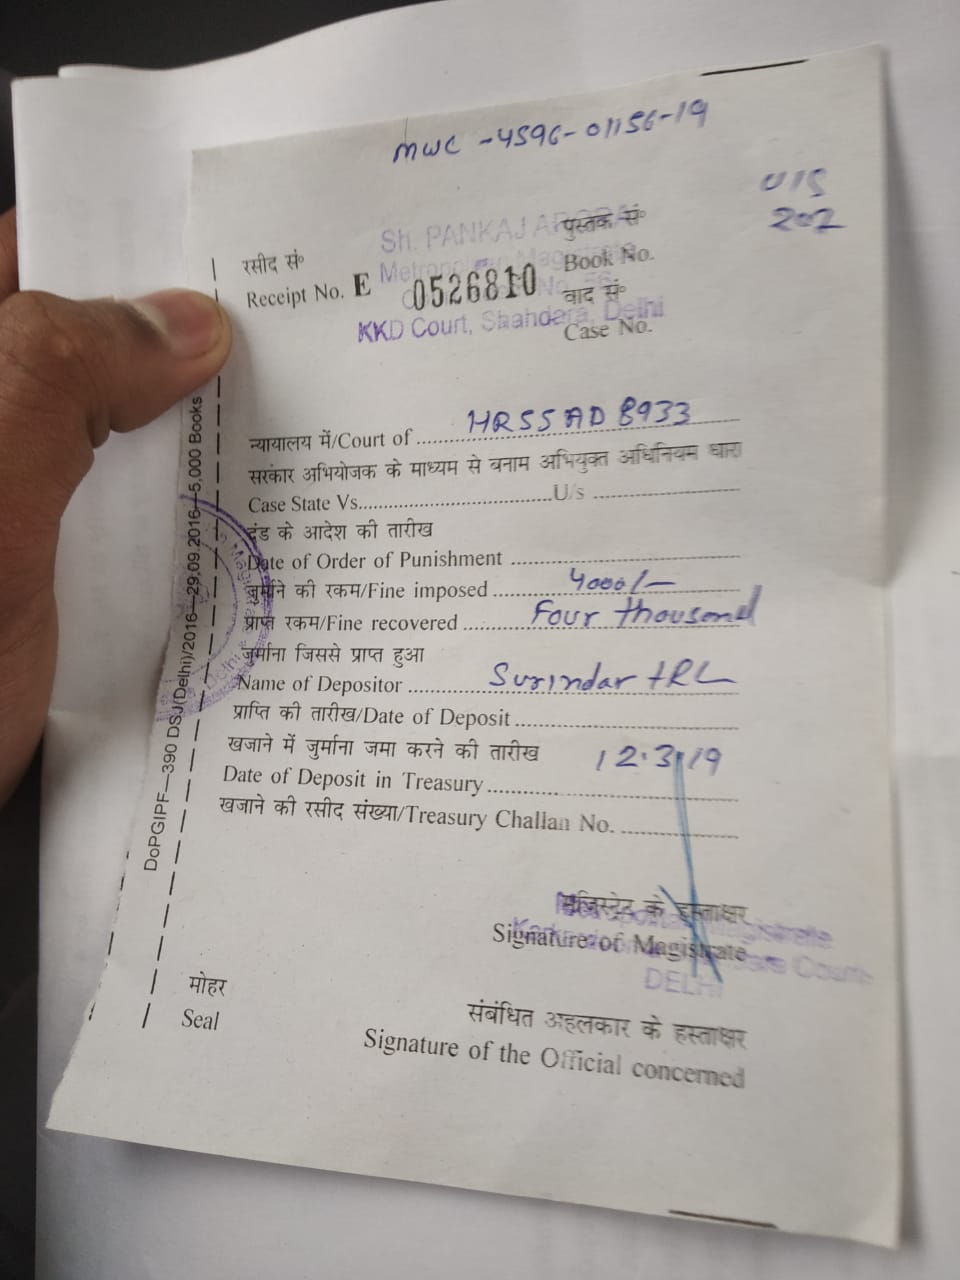 MWC - 4596 - 01156-19
U/S
207
Sh. PANKAJ ARORA
रसीद सं०
Receipt No. E 0526810
पुस्तक सं०
Book No.
वाद सं०
Case No.
KKD Court, Shahdara, Delhi
न्यायालय में/Court of HR55AD8933
सरकार अभियोजक के माध्यम से बनाम अभियुक्त अधिनियम धारा
Case State Vs. U/s
दंड के आदेश की तारीख
Date of Order of Punishment
जुर्माने की रकम/Fine imposed 4000/-
प्राप्त रकम/Fine recovered Four thousand
जुर्माना जिससे प्राप्त हुआ
Name of Depositor Surindar
प्राप्ति की तारीख/Date of Deposit
खजाने में जुर्माना जमा करने की तारीख 12.3.19
Date of Deposit in Treasury
खजाने की रसीद संख्या/Treasury Challan No.
मजिस्ट्रेट के हस्ताक्षर
Signature of Magistrate
DELHI
मोहर
Seal
संबंधित अहलकार के हस्ताक्षर
Signature of the Official concerned
DoPGIPF—390 DSJ(Delhi)/2016—29.09.2016—5,000 Books